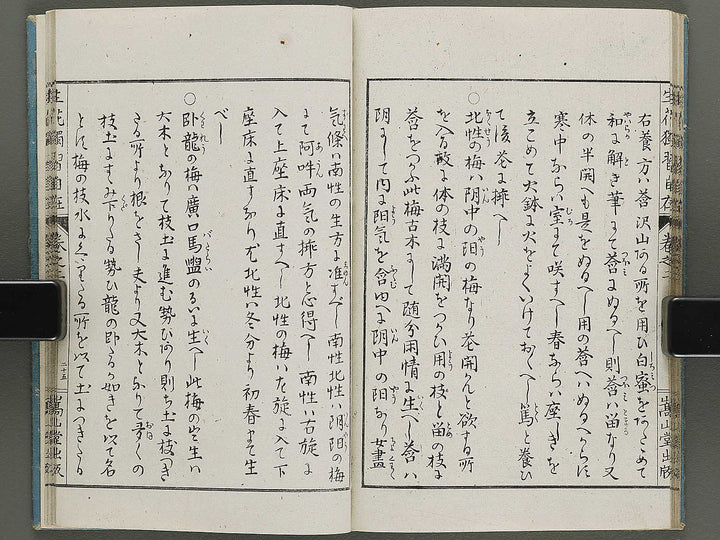 右養方ハ蒼沢山ある所を用ひ白蜜をあたゝめて
和に解き筆にて蒼にぬるへし則蒼ハ留なり又
体の半開へも是をぬるへし用の蒼へハぬるへからす
寒中ならハ室にて咲すへし春ならハ座しきを
立こめて火鉢に火をよくいけておくへし篤と養ひ
て後巻に挿へし
○北性の梅ハ阴中の阳の梅なり巻開んと欲する所
を入る故に体の枝に満開をつかい用の枝と留の枝に
蒼をつかふ此梅古木にして随分閑情に生へし蒼ハ
阴にして内に阳気を含ゆへに阴中の阳なり女畫
気條ハ南性の生方に准すへし南性北性ハ阴阳の梅
にて阿吽両気の挿方と心得へし南性ハ右旋に
入て上座床に直すへし北性の梅ハ左旋に入て下
座床に直すなり尤北性ハ冬分より初春まて生
へし
○卧龍の梅ハ廣口馬盥のるいに生へし此梅の出生ハ
大木となりて枝土に進む勢ひあり則ち土に枝つき
たる所より根をさし夫より又大木となりて多くの
枝土にすゝみ下りたる勢ひ龍の卧たる如きを以て名
とす梅の枝水にくゝりたる所を以て土につきたる
生花獨習自在
卷之二
二十五
嵩山堂出版